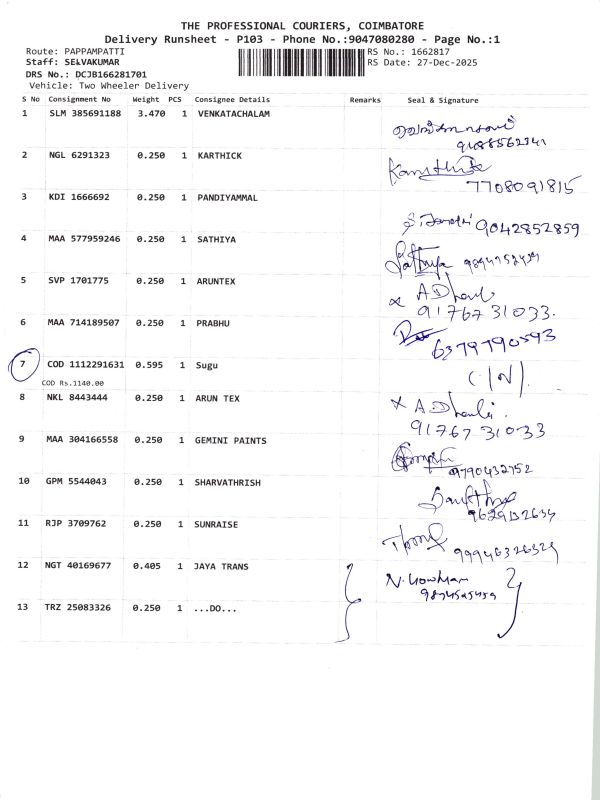 THE PROFESSIONAL COURIERS, COIMBATORE
Delivery Runsheet - P103 - Phone No.:9047080280 - Page No.:1
Route: PAPPAMPATTI
RS No.: 1662817
Staff: SELVAKUMAR
RS Date: 27-Dec-2025
DRS No.: DCJB166281701
Vehicle: Two Wheeler Delivery
S No Consignment No Weight PCS Consignee Details Remarks Seal & Signature
1 SLM 385691188 3.470 1 VENKATACHALAM
2 NGL 6291323 0.250 1 KARTHICK
7708091815
3 KDI 1666692 0.250 1 PANDIYAMMAL
9042852859
4 MAA 577959246 0.250 1 SATHIYA
5 SVP 1701775 0.250 1 ARUNTEX
91767 31033.
6 MAA 714189507 0.250 1 PRABHU
6379790593
7 COD 1112291631 0.595 1 Sugu
C/N
COD Rs.1140.00
8 NKL 8443444 0.250 1 ARUN TEX
91767 31033
9 MAA 304166558 0.250 1 GEMINI PAINTS
9790432752
10 GPM 5544043 0.250 1 SHARVATHRISH
11 RJP 3709762 0.250 1 SUNRAISE
12 NGT 40169677 0.405 1 JAYA TRANS
13 TRZ 25083326 0.250 1 ...DO...